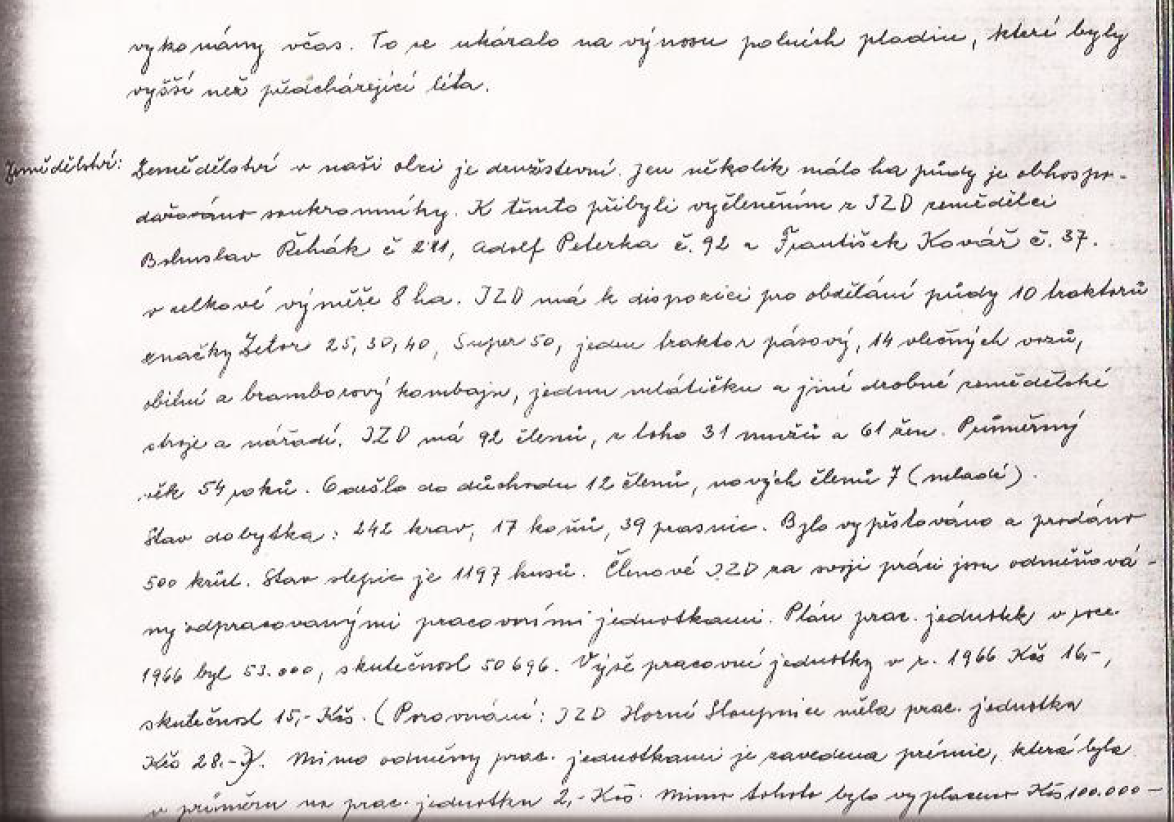 vykonány včas. To se ukázalo na výnosu polních plodin, které byly
vyšší než předcházející léta.
Zemědělství: Zemědělství v naši obci je družstevní. Jen několik málo ha půdy je obhospo-
dařováno soukromníky. K těmto přibyli vyčleněním z JZD zemědělci
Bohuslav Řehák č 211, Adolf Peterka č. 92 a František Kovář č. 37.
v celkové výměře 8 ha. JZD má k dispozici pro obdělání půdy 10 traktorů
značky Zetor 25, 30, 40, Super 50, jeden traktor pásový, 14 vlečných vozů,
obilní a bramborový kombajn, jednu mlátičku a jiné drobné zemědělské
stroje a nářadí. JZD má 92 členů, z toho 31 mužů a 61 žen. Průměrný
věk 54 roků. Odešlo do důchodu 12 členů, nových členů 7 (mladé).
Stav dobytka: 242 krav, 17 koňů, 39 prasnic. Bylo vypěstováno a prodáno
500 krůt. Stav slepic je 1197 kusů. Členové JZD za svoji práci jsou odměňová-
ny odpracovanými pracovními jednotkami. Plán prac. jednotek v roce
1966 byl 53.000, skutečnost 50696. Výše pracovní jednotky v r. 1966 Kčs 16,-,
skutečnost 15,- Kčs. (Porovnání: JZD Horní Sloupnice měla prac. jednotka
Kčs 28.-). Mimo odměny prac. jednotkami je zavedena prémie, která byla
v průměru na prac. jednotku 2,- Kčs. Mimo tohoto bylo vyplaceno Kčs 100.000-